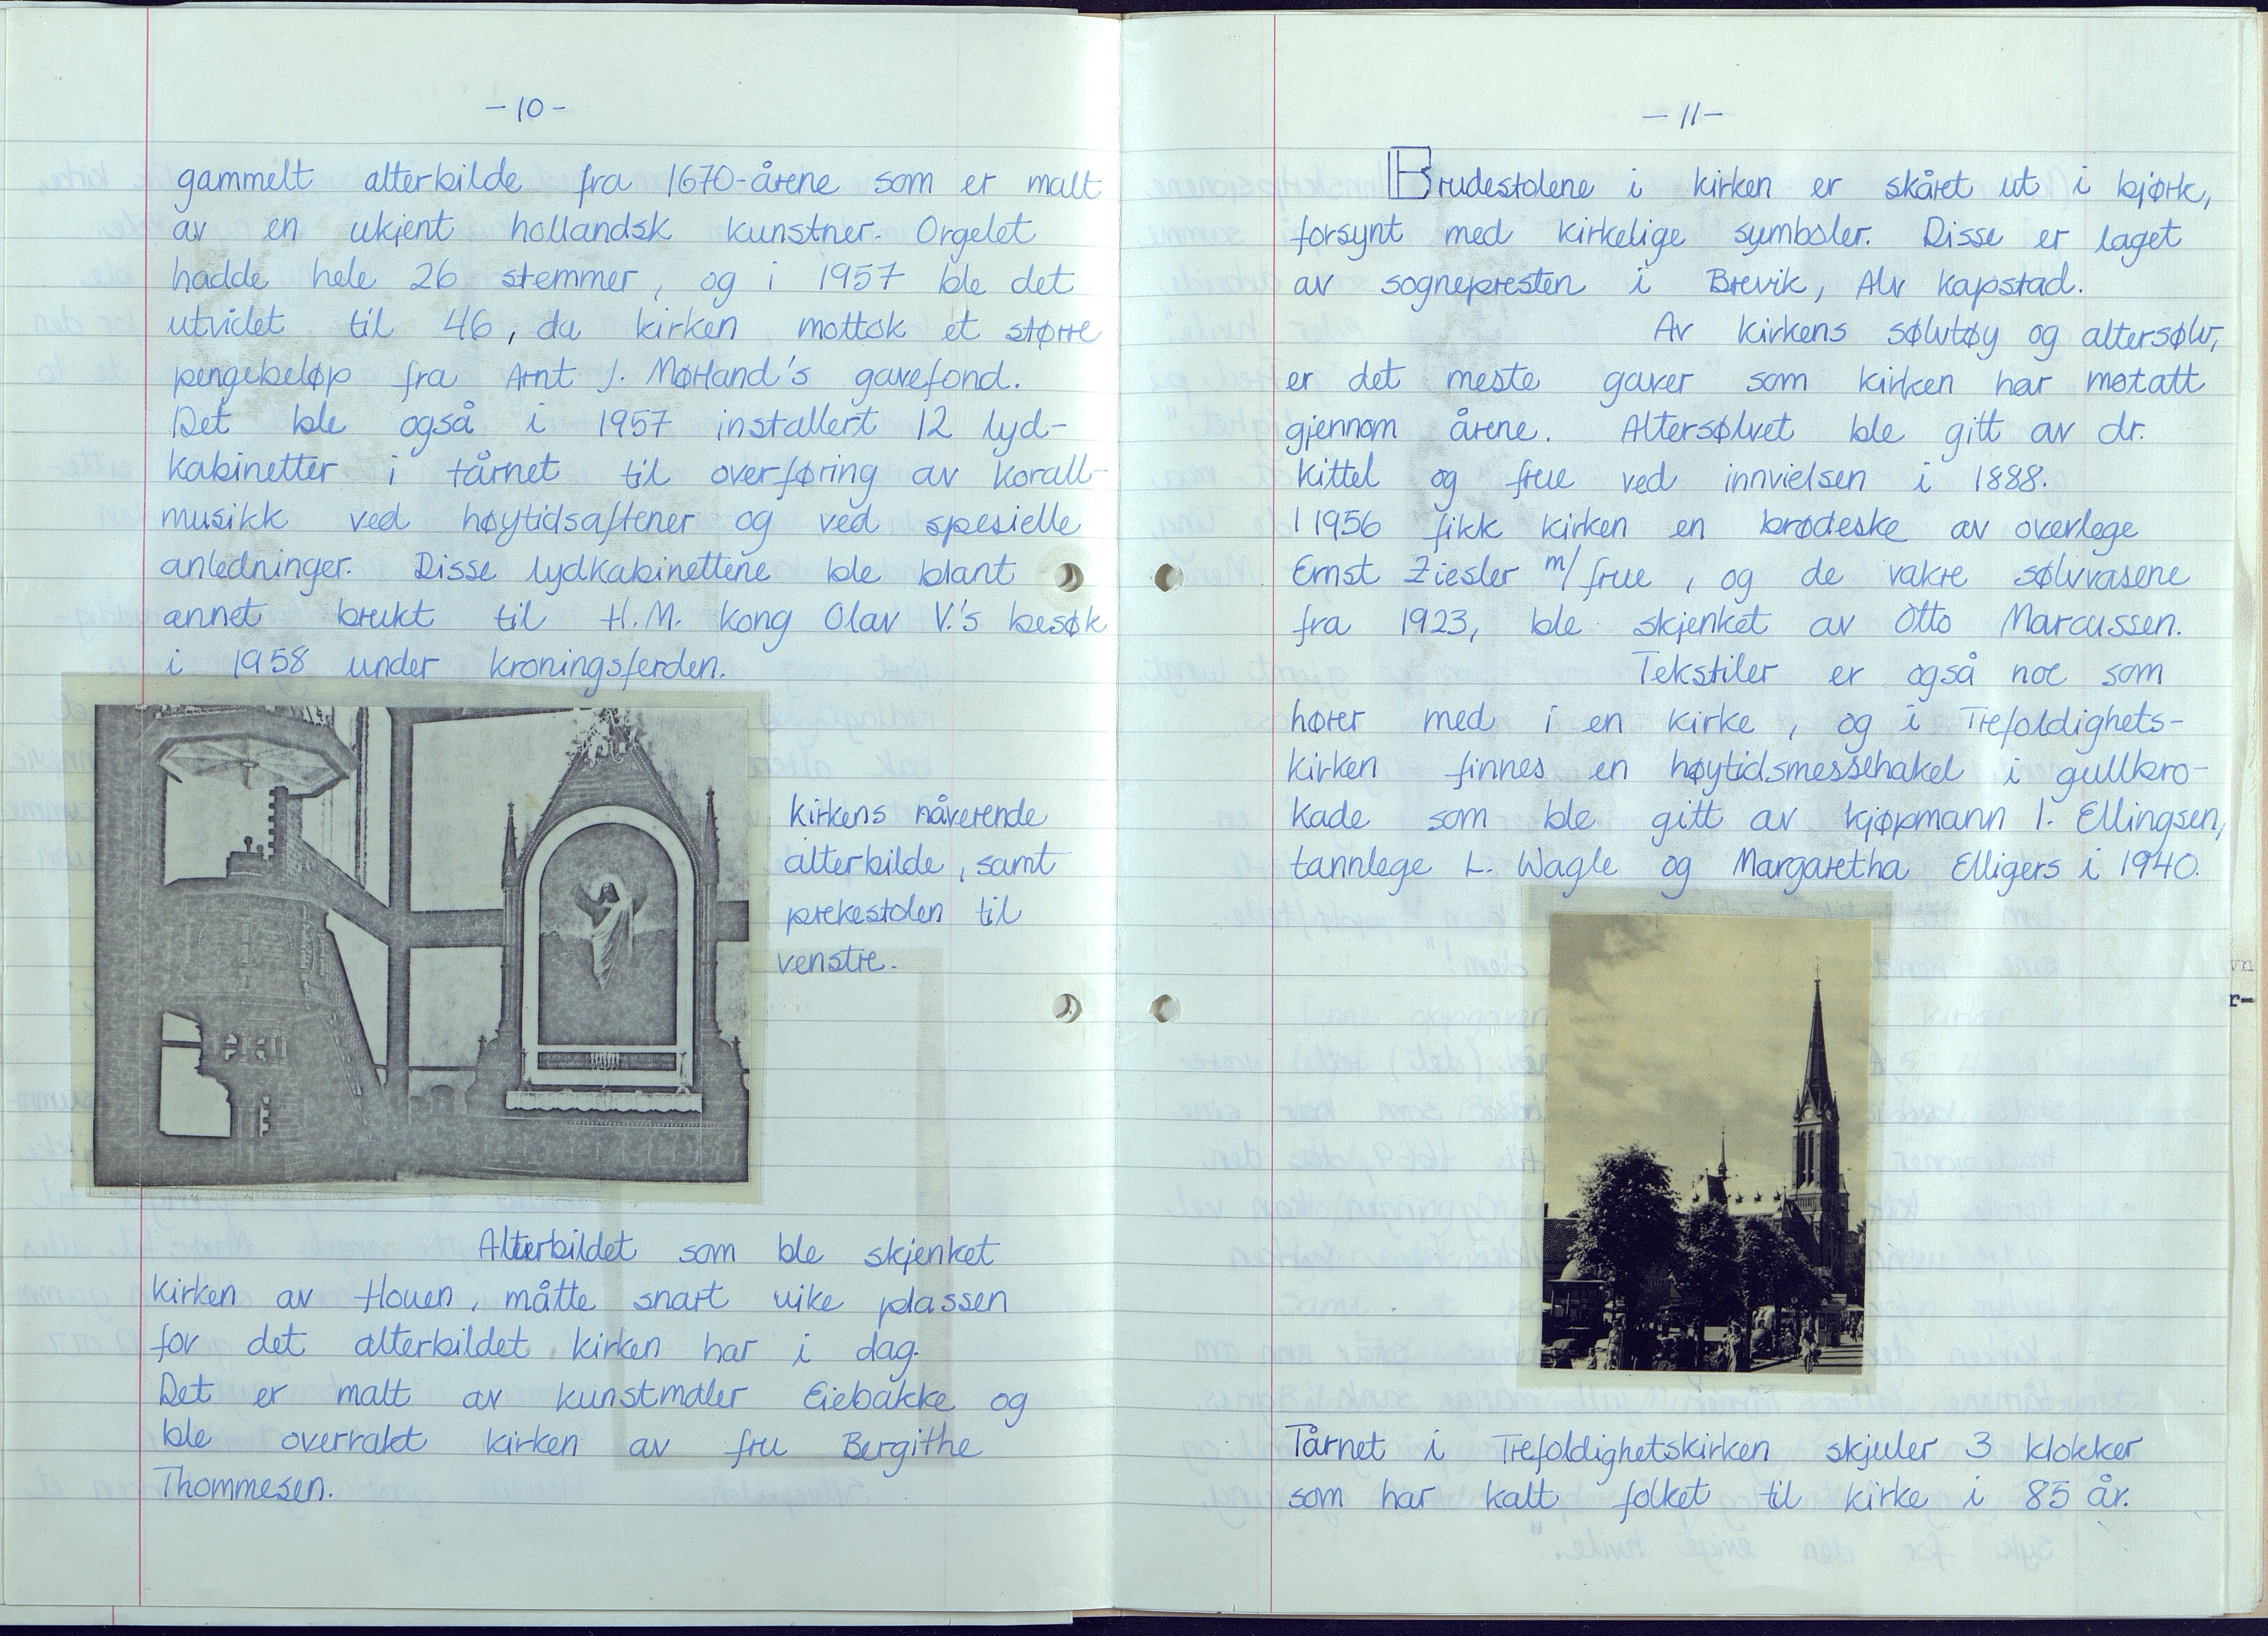 -10-
gammelt alterbilde fra 1670-årene som er malt
av en ukjent hollandsk kunstner. Orgelet
hadde hele 26 stemmer, og i 1957 ble det
utvidet til 46, da kirken mottok et større
pengebeløp fra Arnt J. Mørland's gavefond.
Det ble også i 1957 installert 12 lyd-
kabinetter i tårnet til overføring av korall-
musikk ved høytidsaftener og ved spesielle
anledninger. Disse lydkabinettene ble blant
annet brukt til H.M. Kong Olav V.'s besøk
i 1958 under kroningsferden.
Kirkens nåverende
alterbilde, samt
prekestolen til
venstre.
Alterbildet som ble skjenket
kirken av Houen, måtte snart vike plassen
for det alterbildet kirken har i dag.
Det er malt av kunstmaler Eiebakke og
ble overrakt kirken av fru Bergithe
Thommesen.
-11-
Brudestolene i kirken er skåret ut i bjørk,
forsynt med kirkelige symboler. Disse er laget
av sognepresten i Brevik, Alv Kapstad.
Av kirkens sølvtøy og altersølv,
er det meste gaver som kirken har motatt
gjennom årene. Altersølvet ble gitt av dr.
Kittel og frue ved innvielsen i 1888.
I 1956 fikk kirken en brødeske av overlege
Ernst Ziesler m/frue, og de vakre sølvvasene
fra 1923, ble skjenket av Otto Marcussen.
Tekstiler er også noe som
hører med i en kirke, og i Trefoldighets-
kirken finnes en høytidsmessehakel i gullbro-
kade som ble gitt av kjøpmann I. Ellingsen,
tannlege L. Wagle og Margaretha Elligers i 1940.
Tårnet i Trefoldighetskirken skjuler 3 klokker
som har kalt folket til kirke i 85 år.